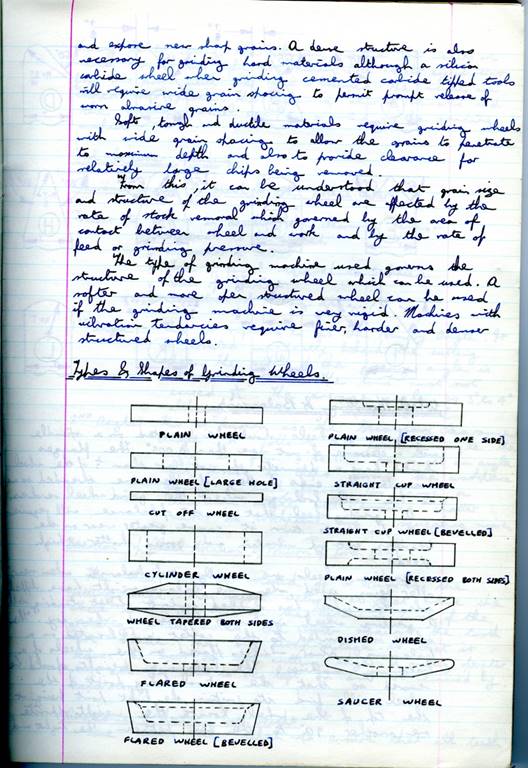 and expose new sharp grains. A dense structure is also
necessary for grinding hard materials although a silicon
carbide wheel when grinding cemented carbide tipped tools
will require wide grain spacing to permit prompt release of
worn abrasive grains.
Soft, tough and ductile materials require grinding wheels
with wide grain spacing to allow the grains to penetrate
to maximum depth and also to provide clearance for
relatively large chips being removed.
From this, it can be understood that grain size
and structure of the grinding wheel are affected by the
rate of stock removal which governed by the area of
contact between wheel and work and by the rate of
feed or grinding pressure.
The type of grinding machine used governs the
structure of the grinding wheel which can be used. A
softer and more open structured wheel can be used
if the grinding machine is very rigid. Machines with
vibration tendencies require finer, harder and denser
structured wheels.
Types & Shapes of Grinding Wheels.
PLAIN WHEEL
PLAIN WHEEL [LARGE HOLE]
CUT OFF WHEEL
CYLINDER WHEEL
WHEEL TAPERED BOTH SIDES
FLARED WHEEL
FLARED WHEEL [BEVELLED]
PLAIN WHEEL [RECESSED ONE SIDE]
STRAIGHT CUP WHEEL
STRAIGHT CUP WHEEL [BEVELLED]
PLAIN WHEEL [RECESSED BOTH SIDES]
DISHED WHEEL
SAUCER WHEEL